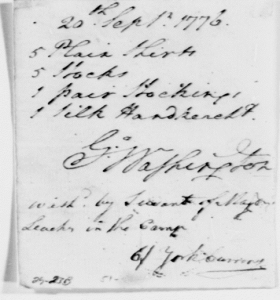 20th Sept. 1776.
5 Plain Shirts
5 Stocks
1 pair Stockings
1 Silk Handkercht.
Go. Washington
wash'd by Servant of Major
Leach in the Camp
6/ York Currency